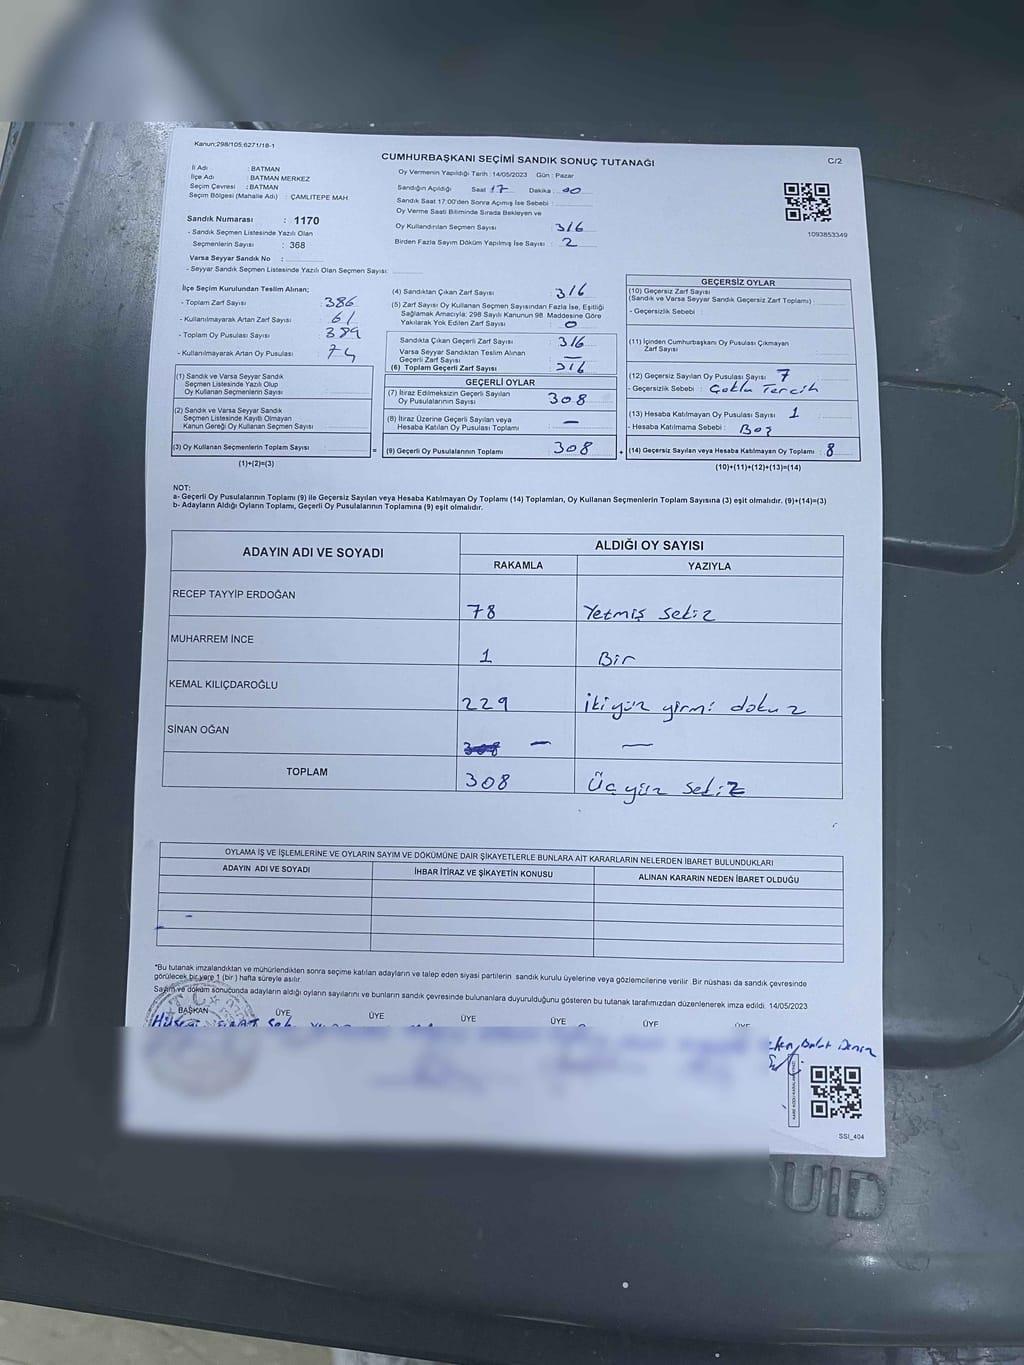 Kanun;298/105;6271/18-1
CUMHURBAŞKANI SEÇİMİ SANDIK SONUÇ TUTANAĞI
C/2
İl Adı : BATMAN
İlçe Adı : BATMAN MERKEZ
Seçim Çevresi : BATMAN
Seçim Bölgesi (Mahalle Adı) : ÇAMLITEPE MAH
Sandık Numarası : 1170
- Sandık Seçmen Listesinde Yazılı Olan
Seçmenlerin Sayısı : 368
Varsa Seyyar Sandık No :
- Seyyar Sandık Seçmen Listesinde Yazılı Olan Seçmen Sayısı:
Oy Vermenin Yapıldığı Tarih : 14/05/2023 Gün : Pazar
Sandığın Açıldığı Saat 17 Dakika : 00
Sandık Saat 17:00'den Sonra Açımış İse Sebebi :
Oy Verme Saati Bitiminde Sırada Bekleyen ve
Oy Kullandırılan Seçmen Sayısı 316
Birden Fazla Sayım Döküm Yapılmış İse Sayısı : 2
1093853349
İlçe Seçim Kurulundan Teslim Alınan;
- Toplam Zarf Sayısı : 386
- Kullanılmayarak Artan Zarf Sayısı : 61
- Toplam Oy Pusulası Sayısı : 389
- Kullanılmayarak Artan Oy Pusulası : 74
(1) Sandık ve Varsa Seyyar Sandık
Seçmen Listesinde Yazılı Olup
Oy Kullanan Seçmenlerin Sayısı
(2) Sandık ve Varsa Seyyar Sandık
Seçmen Listesinde Kayıtlı Olmayan
Kanun Gereği Oy Kullanan Seçmen Sayısı
(3) Oy Kullanan Seçmenlerin Toplam Sayısı
(1)+(2)=(3)
(4) Sandıktan Çıkan Zarf Sayısı : 316
(5) Zarf Sayısı Oy Kullanan Seçmen Sayısından Fazla İse, Eşitliği
Sağlamak Amacıyla; 298 Sayılı Kanunun 98. Maddesine Göre
Yakılarak Yok Edilen Zarf Sayısı : 0
Sandıkta Çıkan Geçerli Zarf Sayısı : 316
Varsa Seyyar Sandıktan Teslim Alınan
Geçerli Zarf Sayısı : —
(6) Toplam Geçerli Zarf Sayısı : 316
GEÇERLİ OYLAR
(7) İtiraz Edilmeksizin Geçerli Sayılan
Oy Pusulalarının Sayısı : 308
(8) İtiraz Üzerine Geçerli Sayılan veya
Hesaba Katılan Oy Pusulası Toplamı : —
(9) Geçerli Oy Pusulalarının Toplamı : 308
=
+
GEÇERSİZ OYLAR
(10) Geçersiz Zarf Sayısı
(Sandık ve Varsa Seyyar Sandık Geçersiz Zarf Toplamı) :
- Geçersizlik Sebebi :
(11) İçinden Cumhurbaşkanı Oy Pusulası Çıkmayan
Zarf Sayısı
(12) Geçersiz Sayılan Oy Pusulası Sayısı : 7
- Geçersizlik Sebebi : Çoklu Tercih
(13) Hesaba Katılmayan Oy Pusulası Sayısı : 1
- Hesaba Katılmama Sebebi : Boş
(14) Geçersiz Sayılan veya Hesaba Katılmayan Oy Toplamı : 8
(10)+(11)+(12)+(13)=(14)
NOT:
a- Geçerli Oy Pusulalarının Toplamı (9) ile Geçersiz Sayılan veya Hesaba Katılmayan Oy Toplamı (14) Toplamları, Oy Kullanan Seçmenlerin Toplam Sayısına (3) eşit olmalıdır. (9)+(14)=(3)
b- Adayların Aldığı Oyların Toplamı, Geçerli Oy Pusulalarının Toplamına (9) eşit olmalıdır.
ADAYIN ADI VE SOYADI
ALDIĞI OY SAYISI
RAKAMLA
YAZIYLA
RECEP TAYYİP ERDOĞAN 78 Yetmiş sekiz
MUHARREM İNCE 1 Bir
KEMAL KILIÇDAROĞLU 229 ikiyüz yirmi dokuz
SİNAN OĞAN — —
TOPLAM 308 Üçyüz sekiz
OYLAMA İŞ VE İŞLEMLERİNE VE OYLARIN SAYIM VE DÖKÜMÜNE DAİR ŞİKAYETLERLE BUNLARA AİT KARARLARIN NELERDEN İBARET BULUNDUKLARI
ADAYIN ADI VE SOYADI
İHBAR İTİRAZ VE ŞİKAYETİN KONUSU
ALINAN KARARIN NEDEN İBARET OLDUĞU
*Bu tutanak imzalandıktan ve mühürlendikten sonra seçime katılan adayların ve talep eden siyasi partilerin sandık kurulu üyelerine veya gözlemcilerine verilir Bir nüshası da sandık çevresinde
görülecek bir yere 1 (bir ) hafta süreyle asılır.
Sayım ve döküm sonucunda adayların aldığı oyların sayılarını ve bunların sandık çevresinde bulunanlara duyurulduğunu gösteren bu tutanak tarafımızdan düzenlenerek imza edildi. 14/05/2023
BAŞKAN ÜYE ÜYE ÜYE ÜYE ÜYE ÜYE
SSI_404
UID